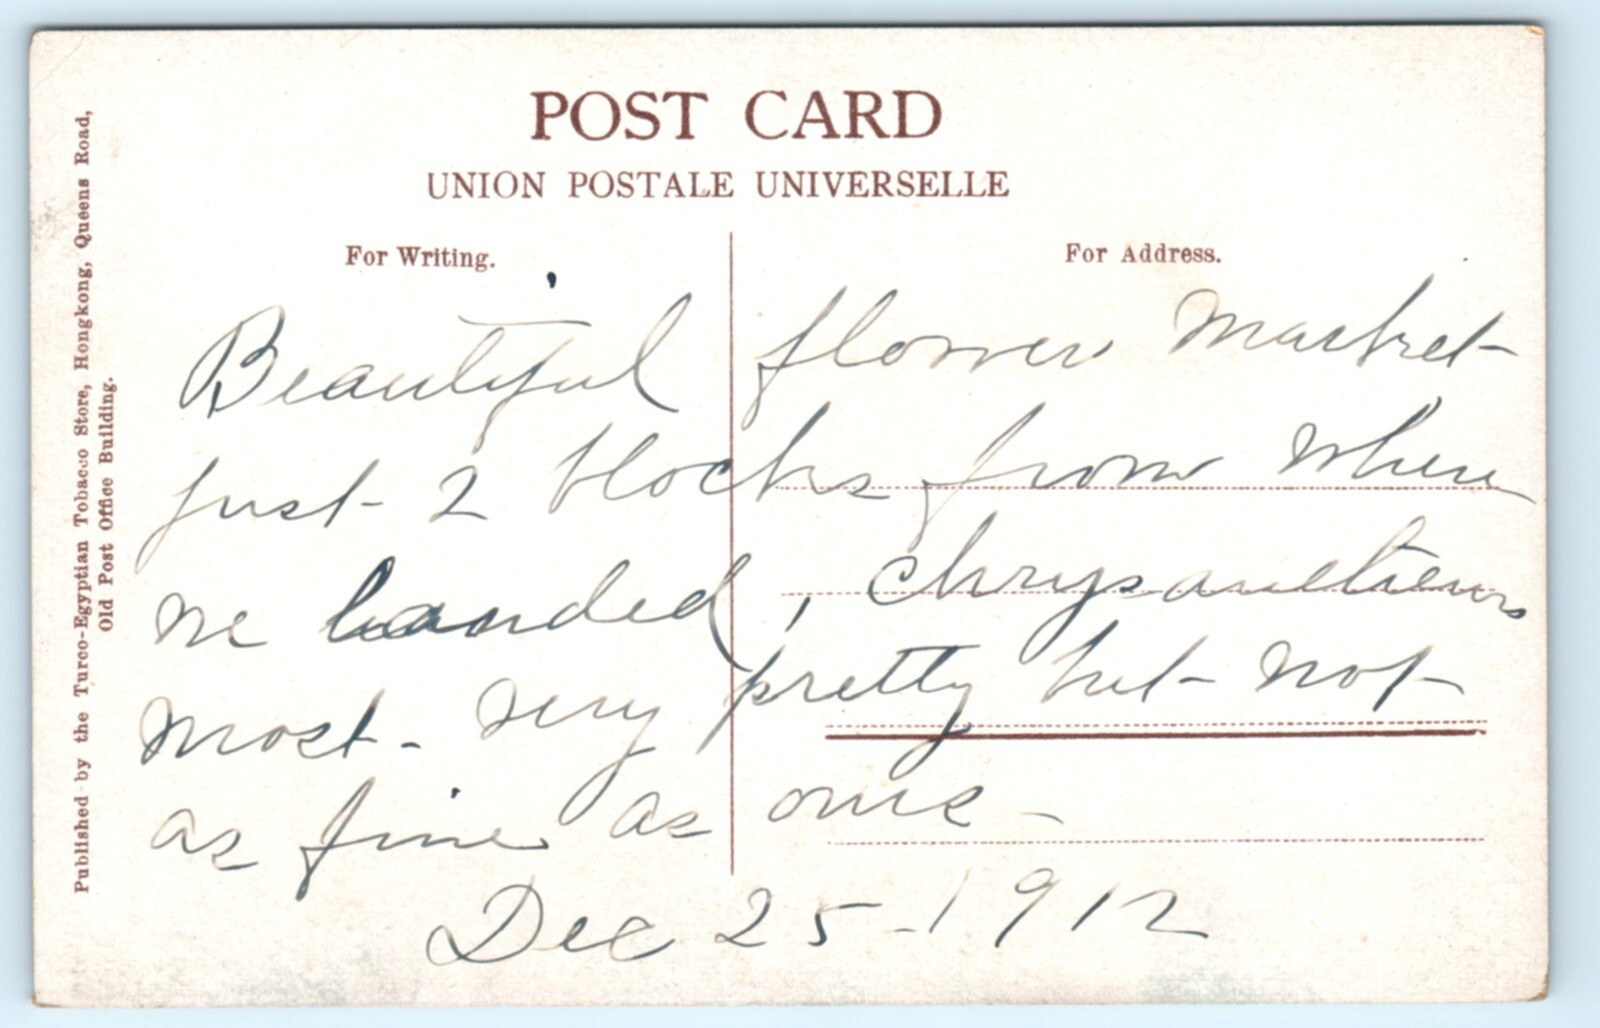 POST CARD
UNION POSTALE UNIVERSELLE
For Writing.
For Address.
Beautiful flower market
just 2 blocks from where
we landed, chrysanthems
most - very pretty but not
as fine as ours -
Dec 25 - 1912
Published by the Turco-Egyptian Tobacco Store, Hongkong, Queens Road,
Old Post Office Building.